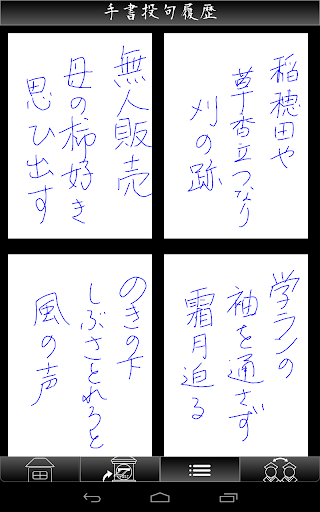 手書投句履歴
無人販売
母の柿好き
思ひ出す
稲穂田や
草香立つなり
刈の跡
のきの下
しぶさとれろと
風の声
学ランの
袖を通さず
霜月迫る